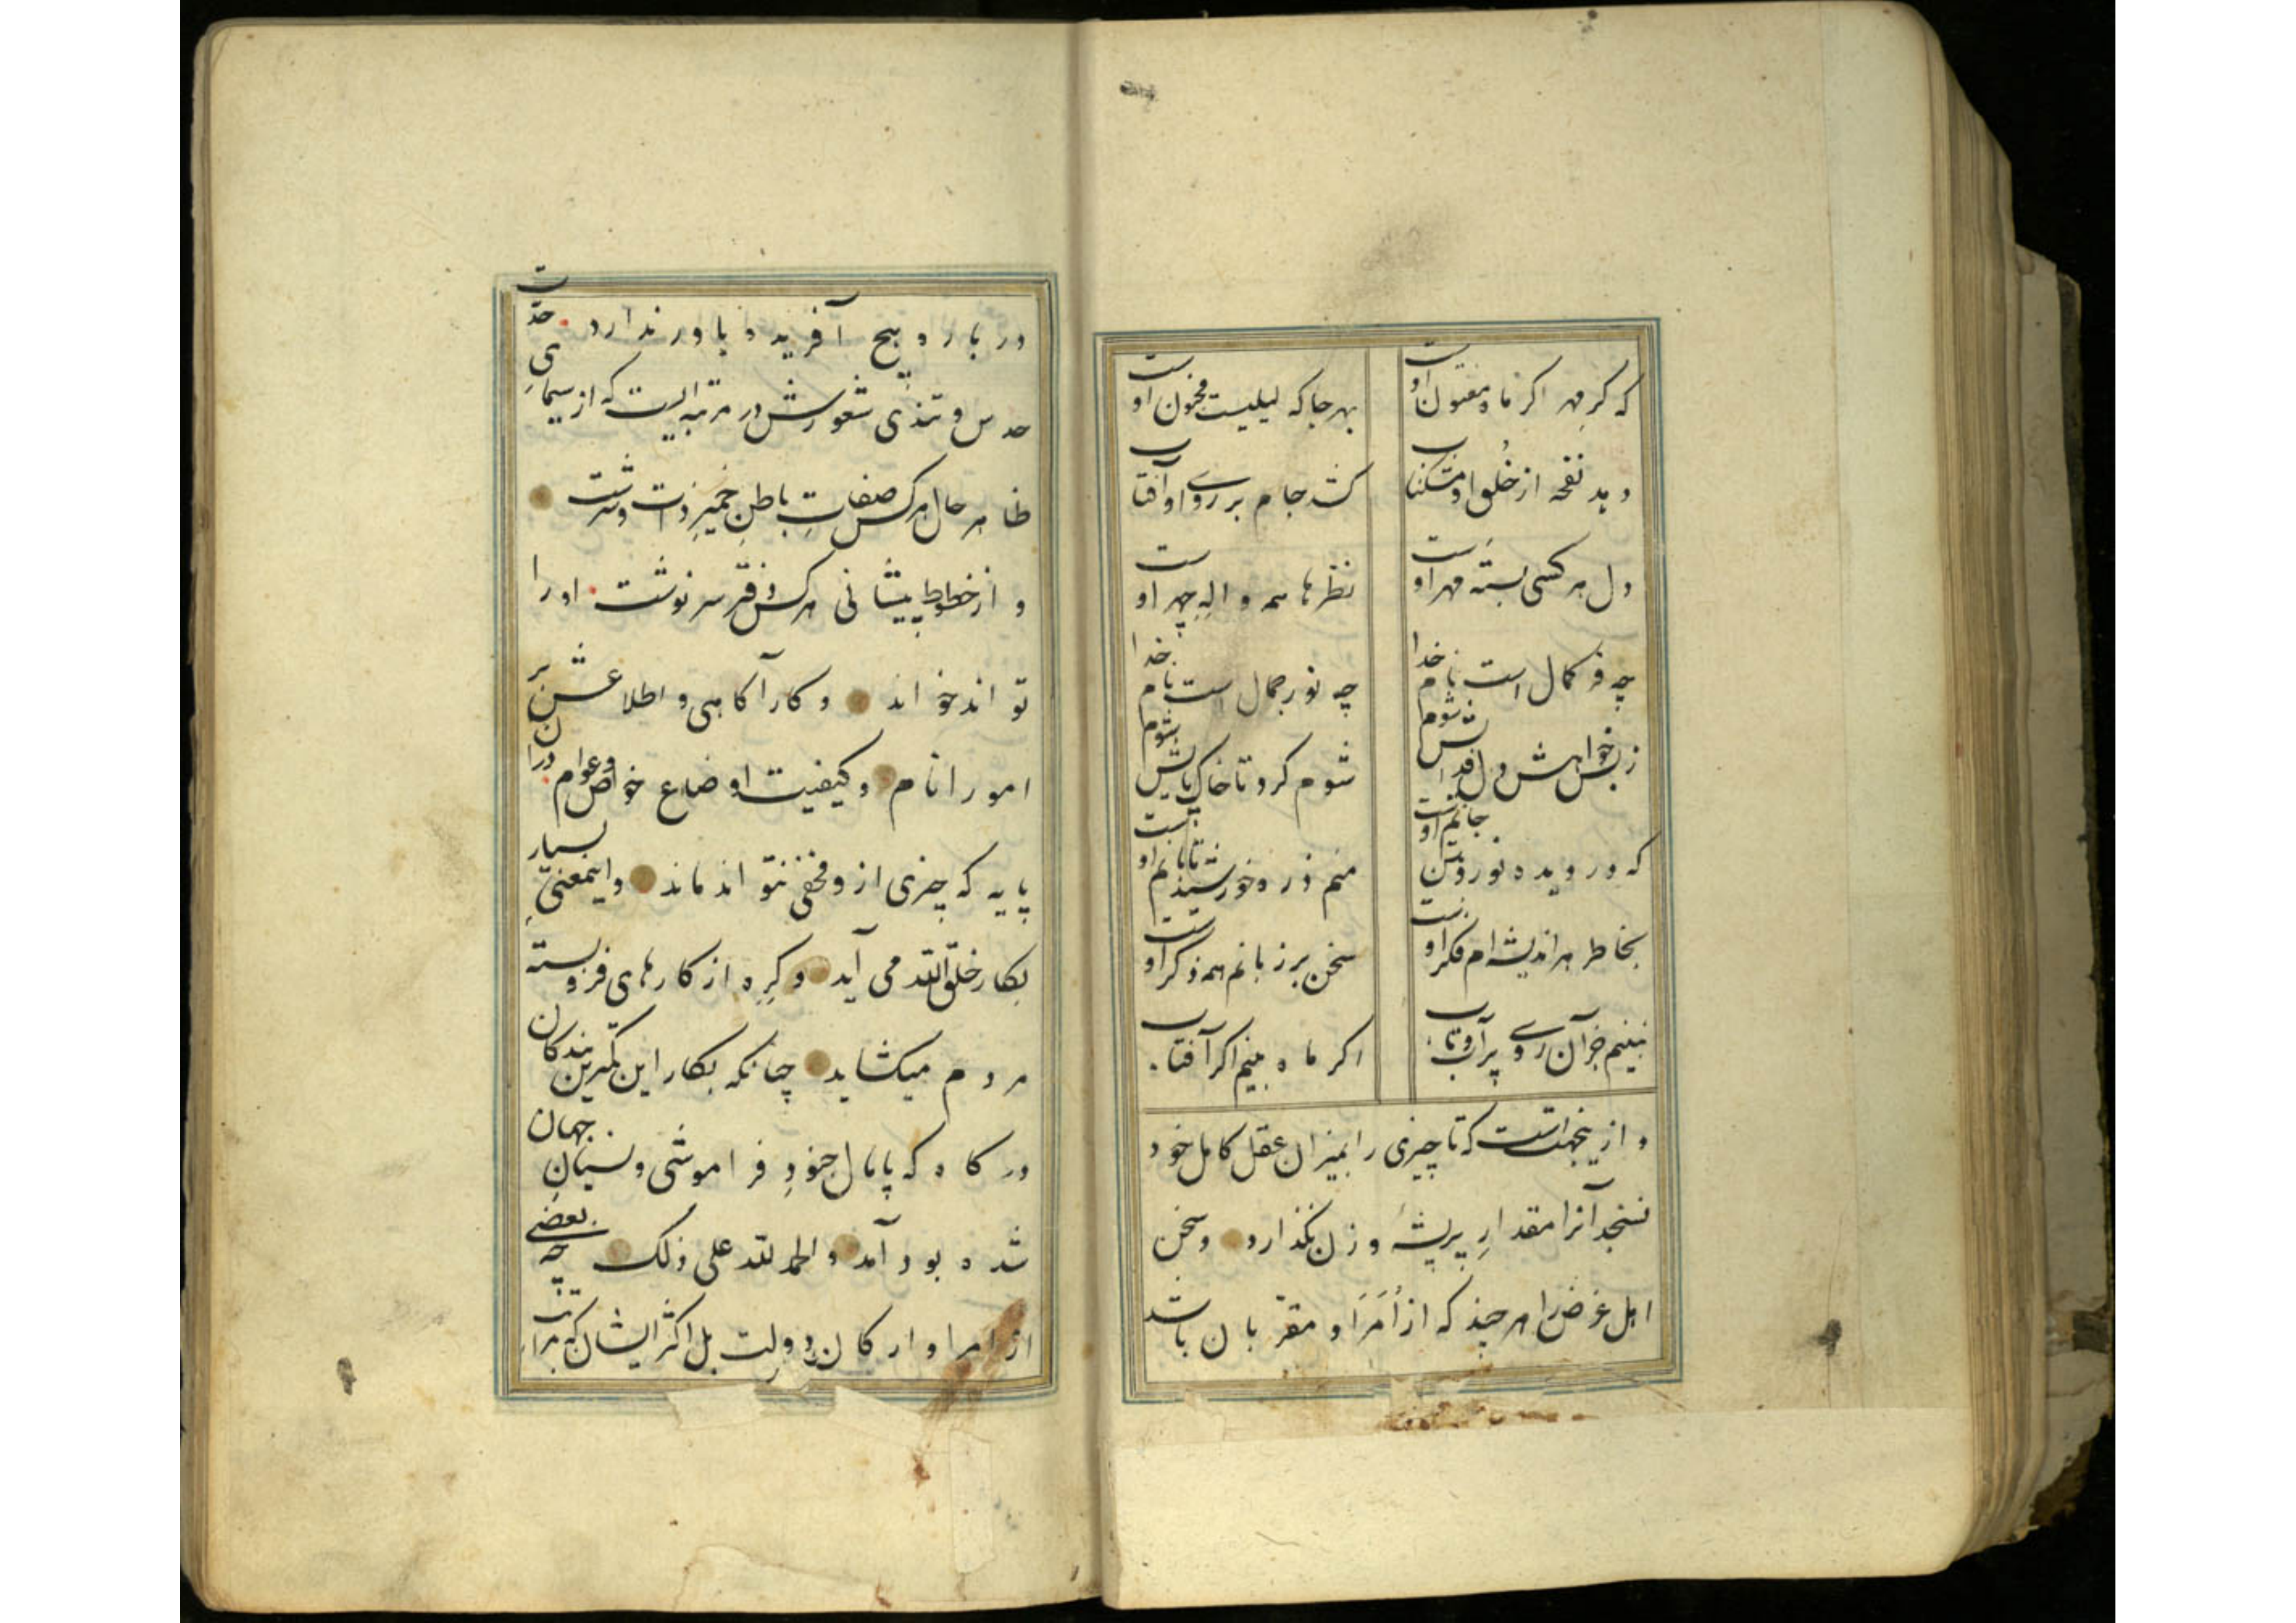 که گر مهر اگر ماه مفتون اوست بهر جا که لیلیست مجنون اوست
دمد نفحه از خُلق او مشکناب کشد جام بر روی او آفتاب
دل هر کسی بستهٔ مهر اوست نظرها همه والهِ چهر اوست
چه فر کمال است نام خدا چه نور جمال است نام خدا
ز بس خواهش دل فدایش شوم شوم گرد تا خاک پایش شوم
که در دیده نور و تن جانم اوست منم ذره خورشید تابانم اوست
بخاطر هر اندیشه ام فکر اوست سخن بر زبانم همه ذکر اوست
نبینم جز آن روی پر آب و تاب اگر ماه بینم اگر آفتاب
و ازینجهت است که تا چیزی را بمیزان عقل کامل خود
نسنجد آنرا مقدارِ پرِ پشهٔ وزن نگذارد و سخن
اهل غرض را هر چند که از اُمَرَا و مقرّبان باشد
در باره هیچ آفریده باور ندارد حدّت
حدس و تندی شعورش در مرتبه ایست که از سیمای
ظاهر حال هر کس صفاتِ باطنِ خمیرِ ذات و سرشت
و از خطوط پیشانی هر کس دفتر سرنوشت او را
تواند خواند و کار آکاهی و اطلاعش بر
امور انام و کیفیت اوضاع خواص و عوام در آن
پایه که چیزی از و مخفی نتواند ماند و اینمعنی بسیار
بکار خلق الله می آید و گرِه از کارهای فرو بسته
مردم میکشاید چنانکه بکار این کمترین بندکان
درگاه که پامال جنودِ فراموشی و نسیانِ جهان
شده بود آمد و الحمد لله علی ذلک چه بعضی
از امرا و ارکان دولت بل اکثر ایشان که